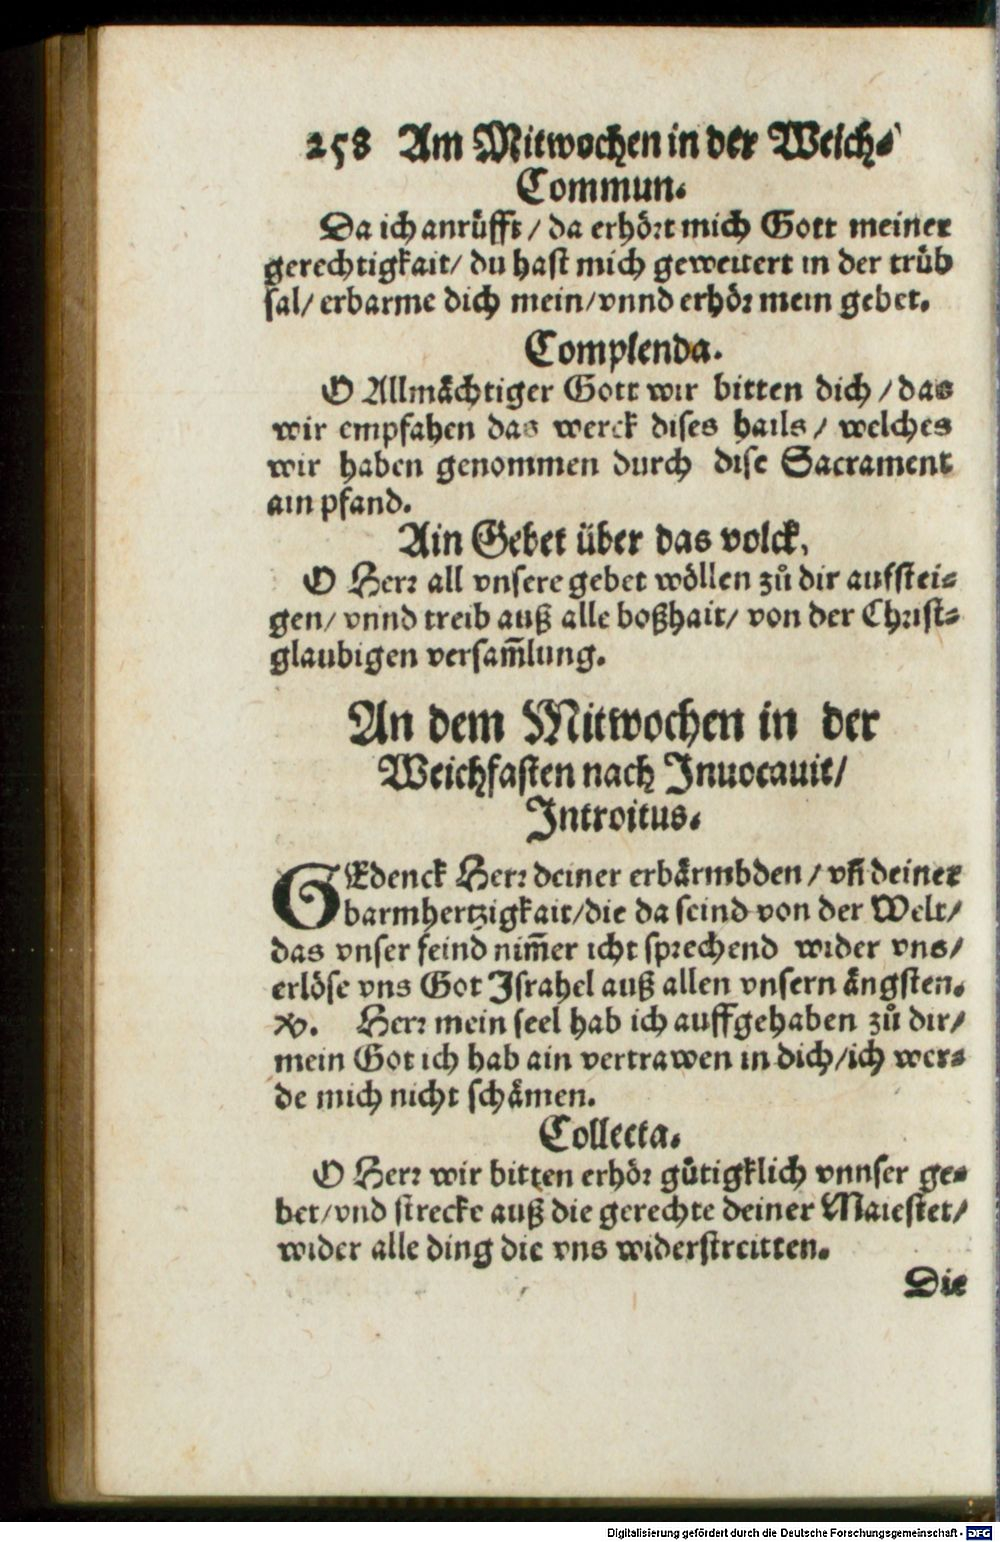 258 Am Mitwochen in der Weich⸗
Commun.
Da ich anrüfft / da erhört mich Gott meiner
gerechtigkait / du hast mich geweitert in der trüb
sal / erbarme dich mein / vnnd erhör mein gebet.
Complenda.
O Allmächtiger Gott wir bitten dich / das
wir empfahen das werck dises hails / welches
wir haben genommen durch dise Sacrament
ain pfand.
Ain Gebet über das volck.
O Herr all vnsere gebet wöllen zů dir aufstei⸗
gen / vnnd treib auß alle boßhait / von der Christ⸗
glaubigen versam̄lung.
An dem Mitwochen in der
Weichfasten nach Inuocauit /
Introitus.
GEdenck Herr deiner erbärmbden / vn̄ deiner
barmhertzigkait / die da seind von der Welt /
das vnser feind nim̄er icht sprechend wider vns /
erlöse vns Got Israhel auß allen vnsern ängsten.
℣. Herr mein seel hab ich auffgehaben zů dir /
mein Got ich hab ain vertrawen in dich / ich wer⸗
de mich nicht schämen.
Collecta.
O Herr wir bitten erhör gütigklich vnnser ge⸗
bet / vnd strecke auß die gerechte deiner Maiestet /
wider alle ding die vns widerstreitten.
Die
Digitalisierung gefördert durch die Deutsche Forschungsgemeinschaft - DFG